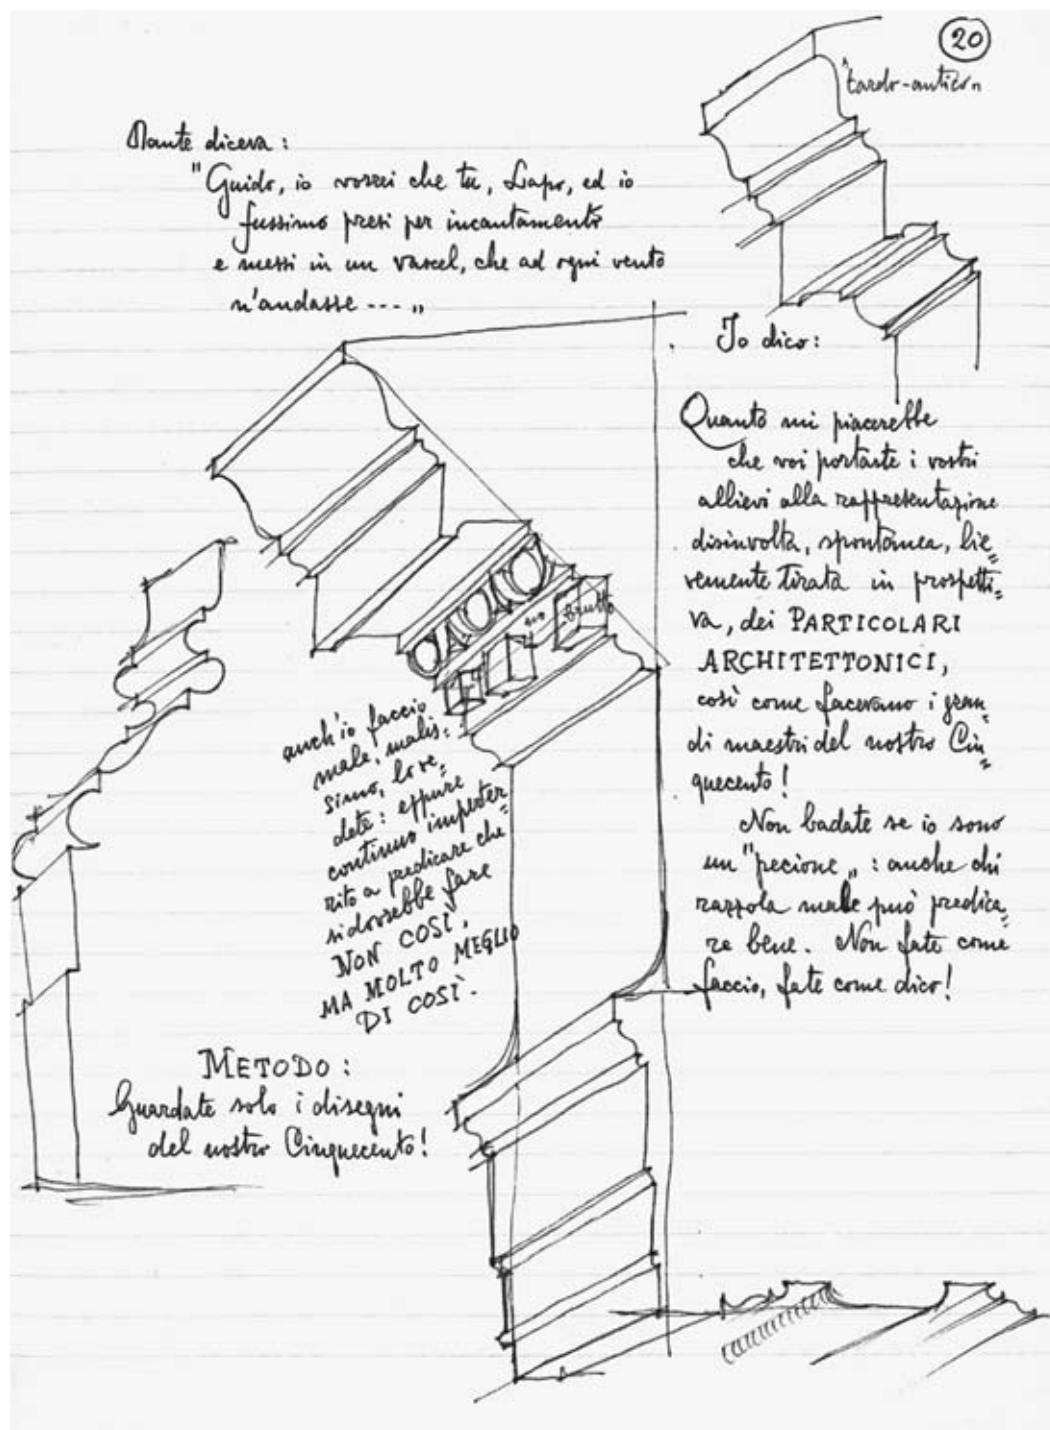 20
"tardo-antico"
Dante diceva:
"Guido, io vorrei che tu, Lapo, ed io
fussimo presi per incantamento
e messi in un vascel, che ad ogni vento
n'andasse --- "
Io dico:
Quanto mi piacerebbe
che voi portaste i vostri
allievi alla rappresentazione
disinvolta, spontanea, lie=
vemente tirata in prospetti=
va, dei PARTICOLARI
ARCHITETTONICI,
così come facevano i gran=
di maestri del nostro Cin=
quecento!
Non badate se io sono
un "pecione": anche chi
razzola male può predica=
re bene. Non fate come
faccio, fate come dico!
brutto
anch'io faccio
male, malis=
simo, lo ve=
dete: eppure
continuo imperter=
rito a predicare che
si dovrebbe fare
NON COSÌ,
MA MOLTO MEGLIO
DI COSÌ.
METODO:
Guardate solo i disegni
del nostro Cinquecento!